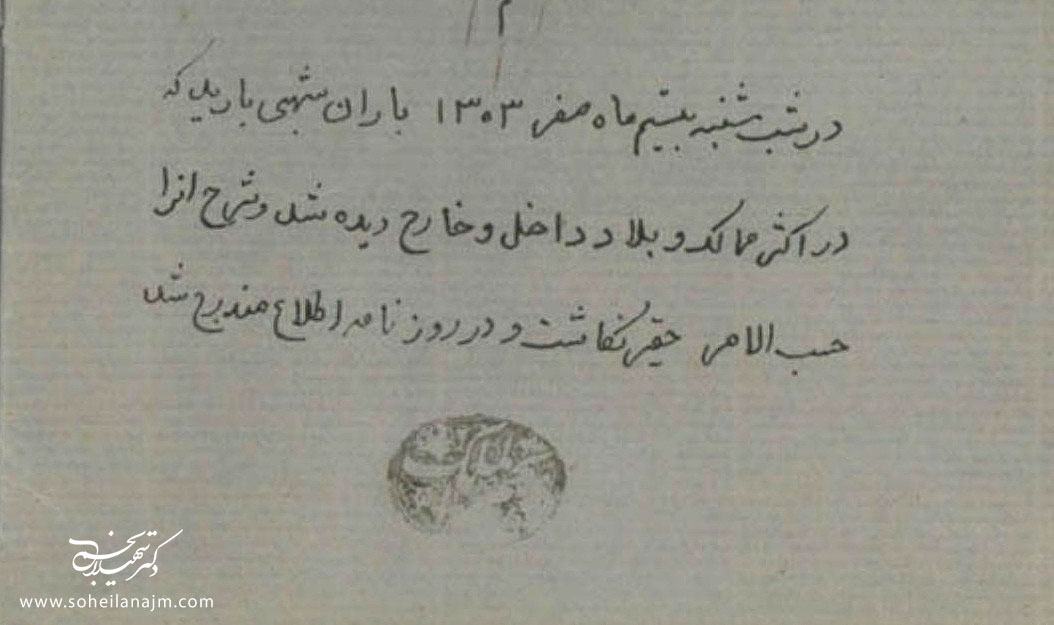 م
در شب شنبه بیستم ماه صفر ۱۳۰۳ باران شهبی بارید که
در اکثر ممالک و بلاد داخل و خارج دیده شد و شرح انرا
حسب الامر حقیر نگاشت و در روزنامه اطلاع مندرج شد
دکتر سهیلا نجم
www.soheilanajm.com